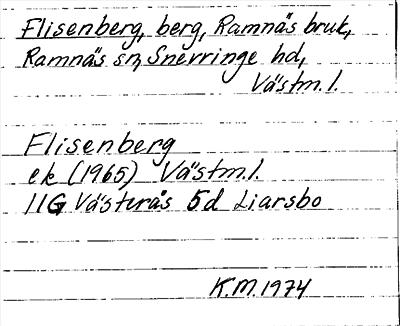 Flisenberg, berg, Ramnäs bruk,
Ramnäs sn, Snerringe hd,
Västm. l.
Flisenberg
ek (1965) Västm. l.
11G Västerås 5d Liarsbo
K.M. 1974